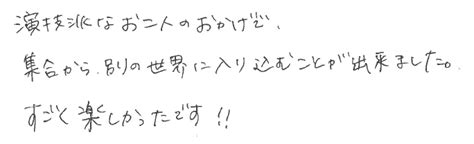 演技派なお二人のおかげで、
集合から、別の世界に入り込むことが出来ました。
すごく楽しかったです!!